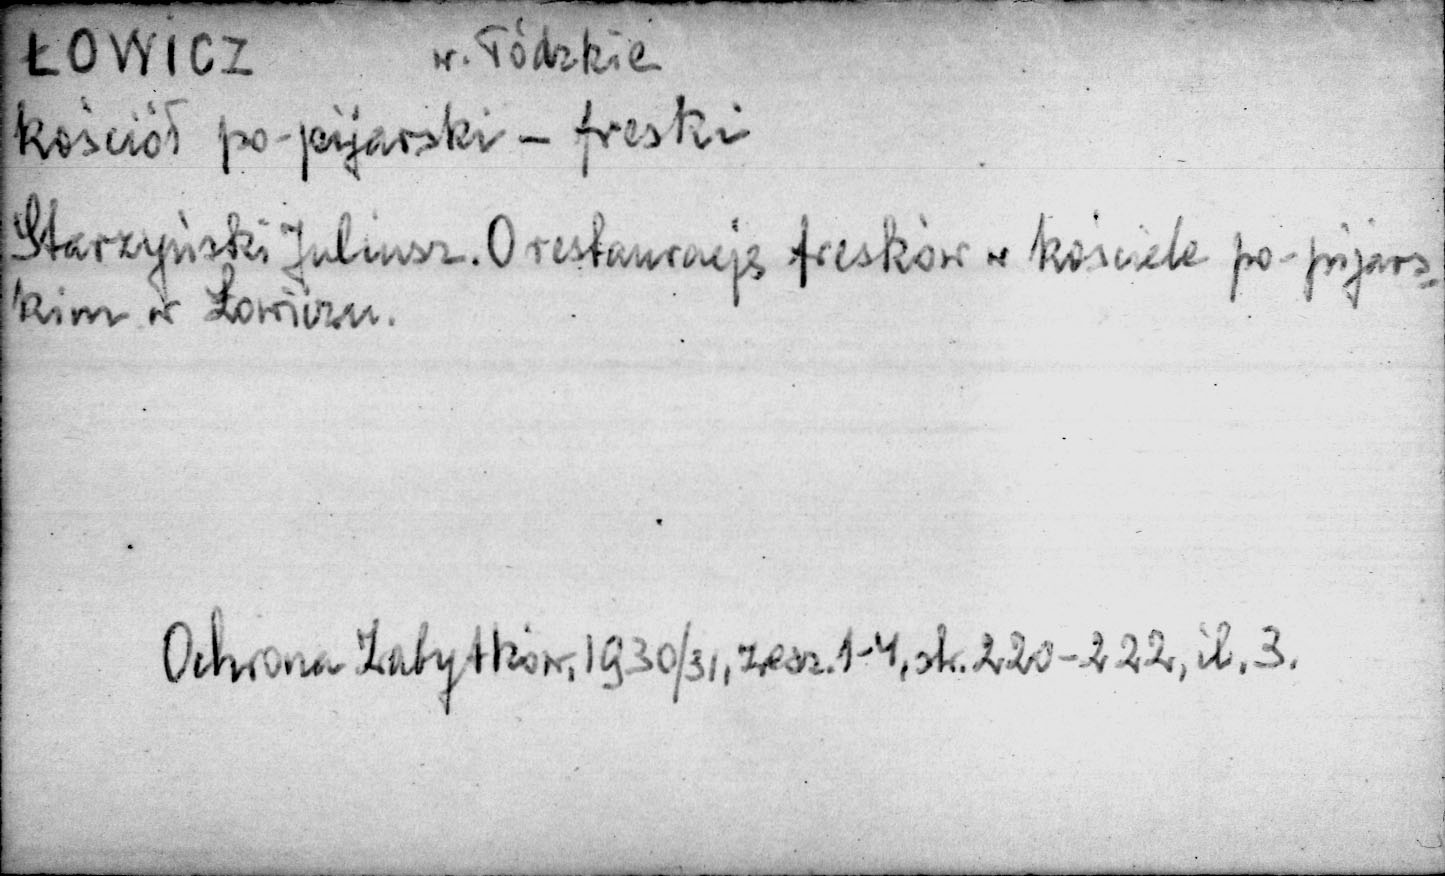 ŁOWICZ w. Łódzkie
kościół po-pijarski – freski
Starzyński Juliusz. O restaurację fresków w kościele po-pijars-
kim w Łowiczu.
Ochrona Zabytków, 1930/31, zesz. 1-4, str. 220-222, il. 3.